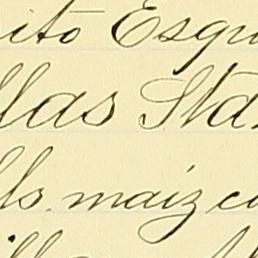 ito Esqu
llas Sta
lls. maiz co